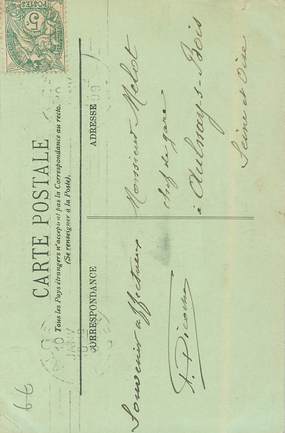 CARTE POSTALE
Tous les Pays étrangers n'acceptent pas la Correspondance au recto.
(Se renseigner à la Poste).
CORRESPONDANCE
ADRESSE
Souvenir affectueux
Monsieur Melot
chef de gare
à Aulnay-s-Bois
Seine et Oise
POSTES
5
66